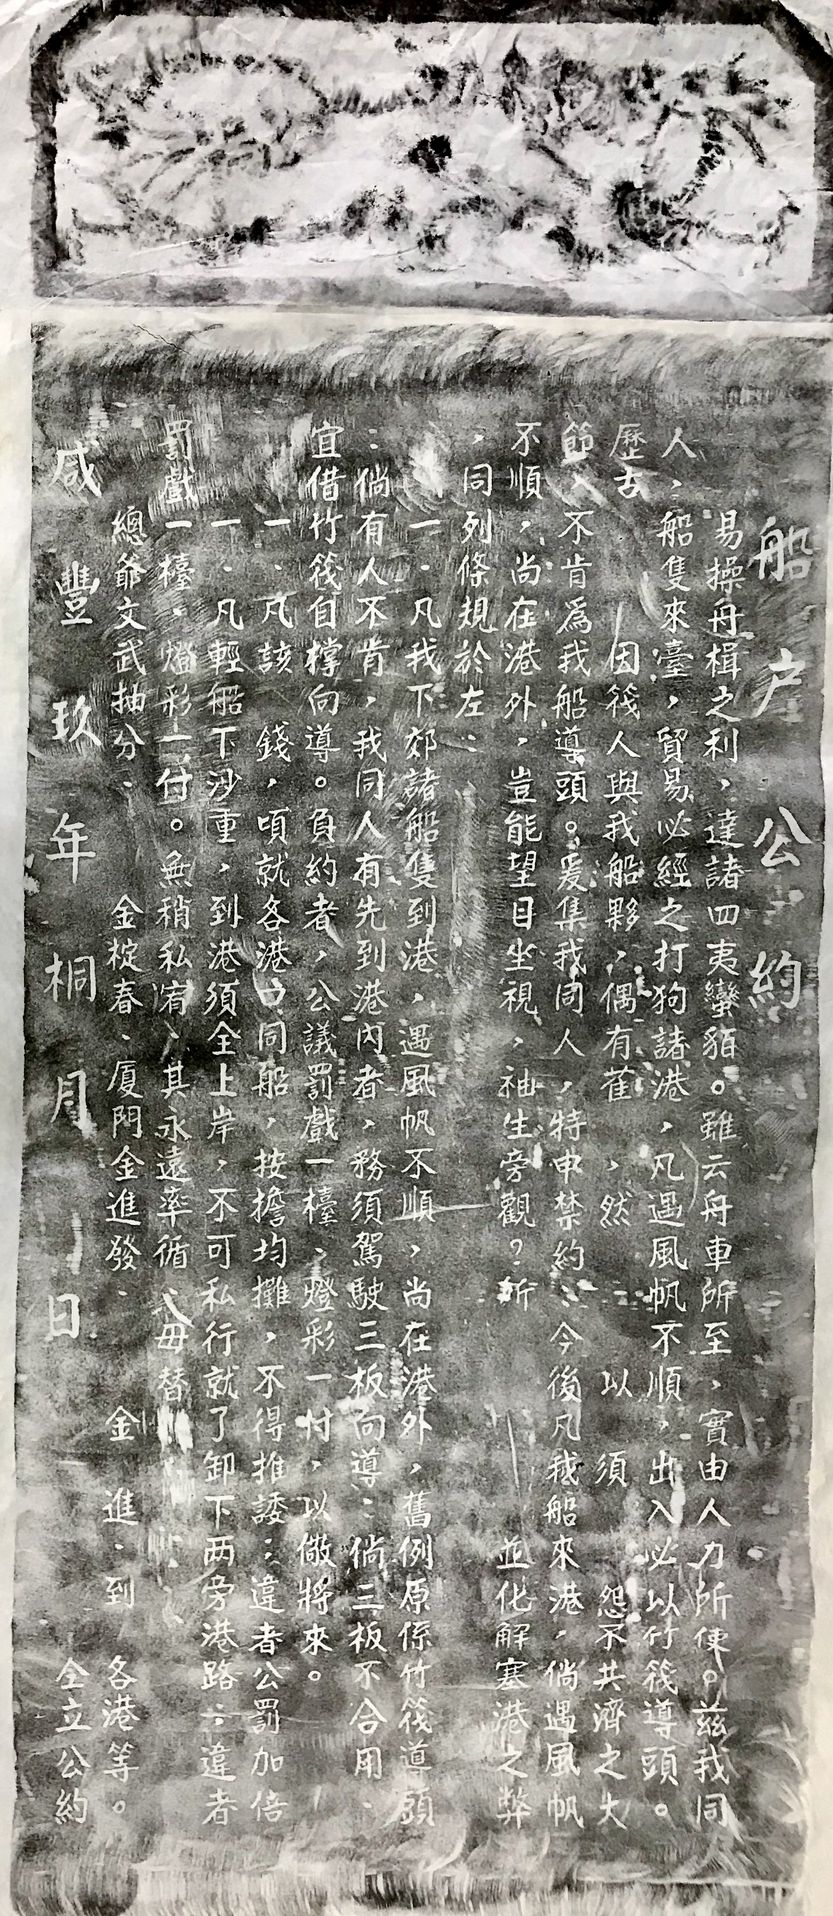 船户公約
易操舟楫之利，達諸四夷蠻貊。雖云舟車所至，實由人力所使。茲我同
人，船隻來臺，貿易必經之打狗諸港，凡遇風帆不順，出入必以竹筏導頭。
歷古 因筏人與我船夥，偶有萑 ，然 以 須 怨不共濟之失
節、不肯爲我船導頭。爰集我同人，特申禁約：今後凡我船來港，倘遇風帆
不順，尚在港外，豈能望目坐視，袖生旁觀？所 並化解塞港之弊
，同列條規於左：
一．凡我下郊諸船隻到港，遇風帆不順，尚在港外，舊例原係竹筏導頭
：倘有人不肯，我同人有先到港內者，務須駕駛三板向導：倘三板不合用、
宜借竹筏自撐向導。負約者，公議罰戲一檯、燈彩一付，以儆將來。
一．凡該 錢，頃就各港口同船，按擔均攤，不得推諉：違者公罰加倍
一．凡輕船下沙重，到港須全上岸，不可私行就了卸下两旁港路：違者
罰戲一檯、燈彩一付。無稍私宥、其永遠率循、毋替
總爺文武抽分、 金椗春、廈門金進發、 金 進、到 各港等。
咸豐玖年桐月 日 仝立公約